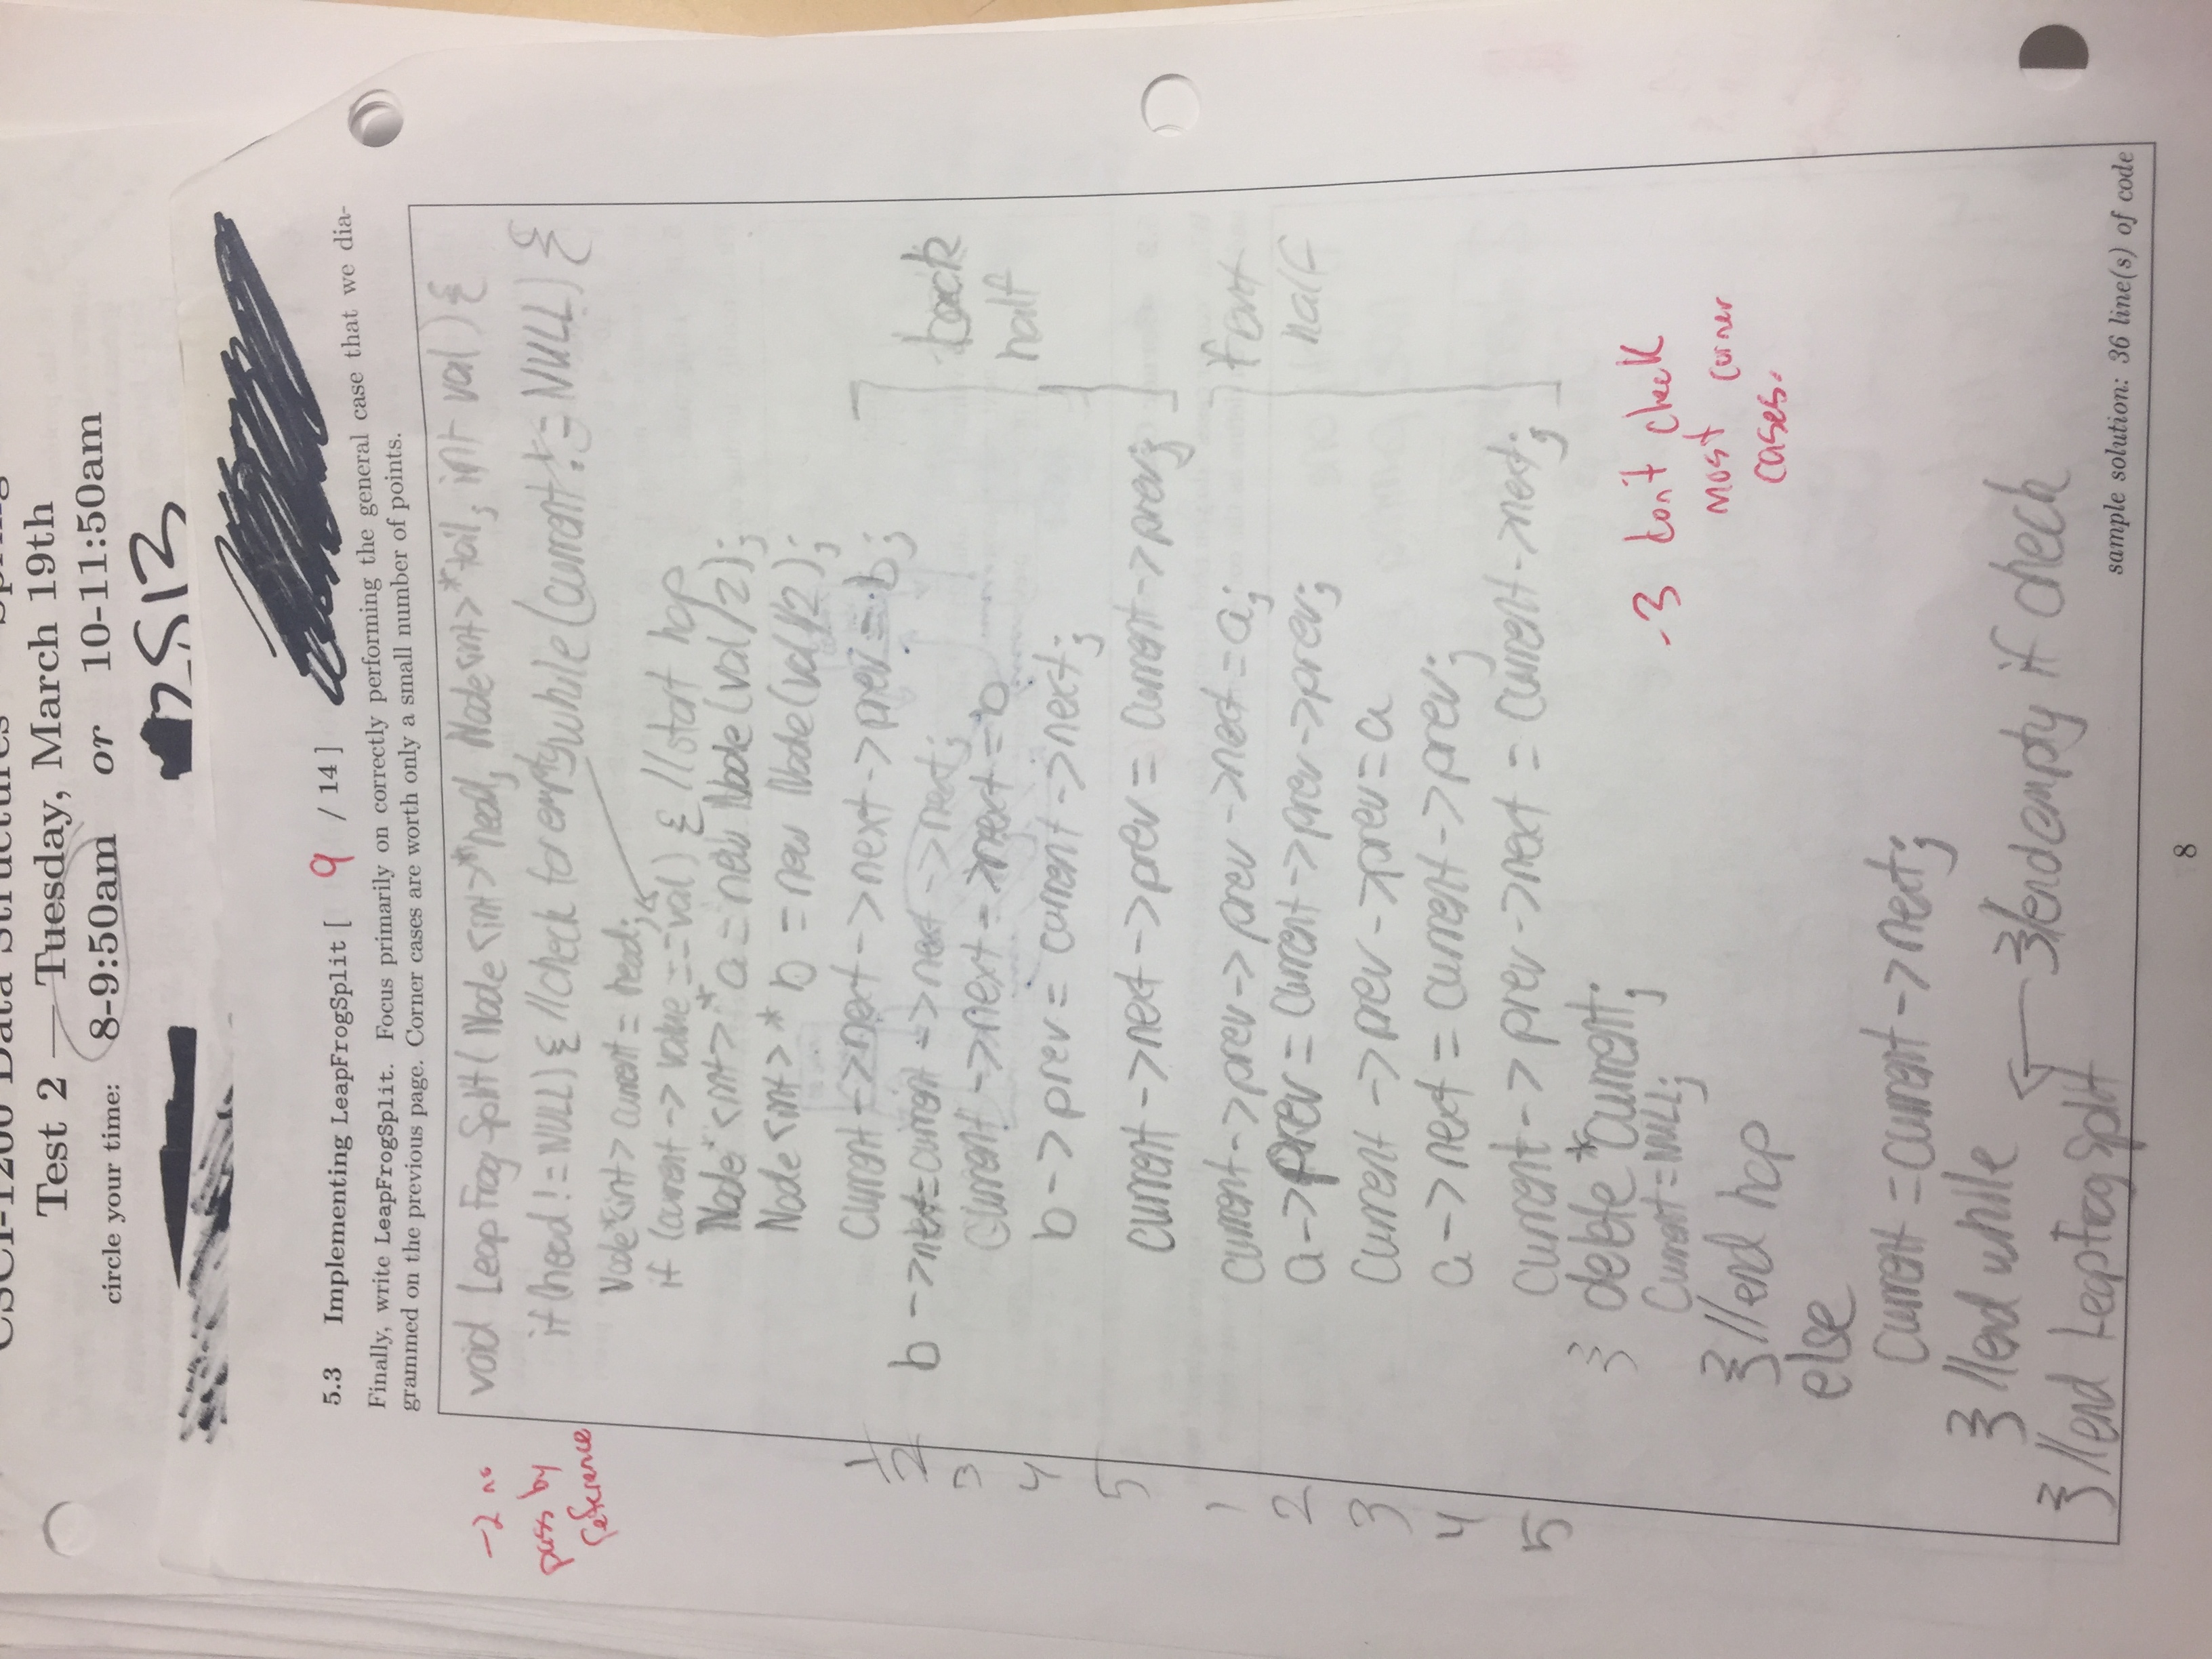 CSCI-1200 Data Structures — Spring
Test 2 — Tuesday, March 19th
circle your time: 8-9:50am or 10-11:50am
2513
5.3 Implementing LeapFrogSplit [ 9 / 14 ]
Finally, write LeapFrogSplit. Focus primarily on correctly performing the general case that we dia-
grammed on the previous page. Corner cases are worth only a small number of points.
-2 no
pass by
reference
void LeapFrogSplit( Node<int>*head, Node<int>*tail, int val ) {
if (head != NULL) { //check for empty while (current != NULL) {
Node*<int> current = head;
if (current -> value == val) { //start hop
Node* <int> *a = new Node(val/2);
Node <int> * b = new Node(val/2);
1 current->next->next->prev = b; back
2 b ->next=current ->next ->next; half
3 current ->next ->next = b
4 b->prev = current ->next;
5 current ->next ->prev = current->prev;
1 current->prev-> prev ->next = a; front
2 a->prev = current->prev->prev; half
3 current ->prev ->prev = a
4 a->next = current->prev;
5 current-> prev ->next = current->next;
} delete *current;
current = NULL;
-3 don't check
most corner
cases.
} //end hop
else
current = current ->next;
} //end while
} //end empty if check
} //end LeapFrogSplit
sample solution: 36 line(s) of code
8